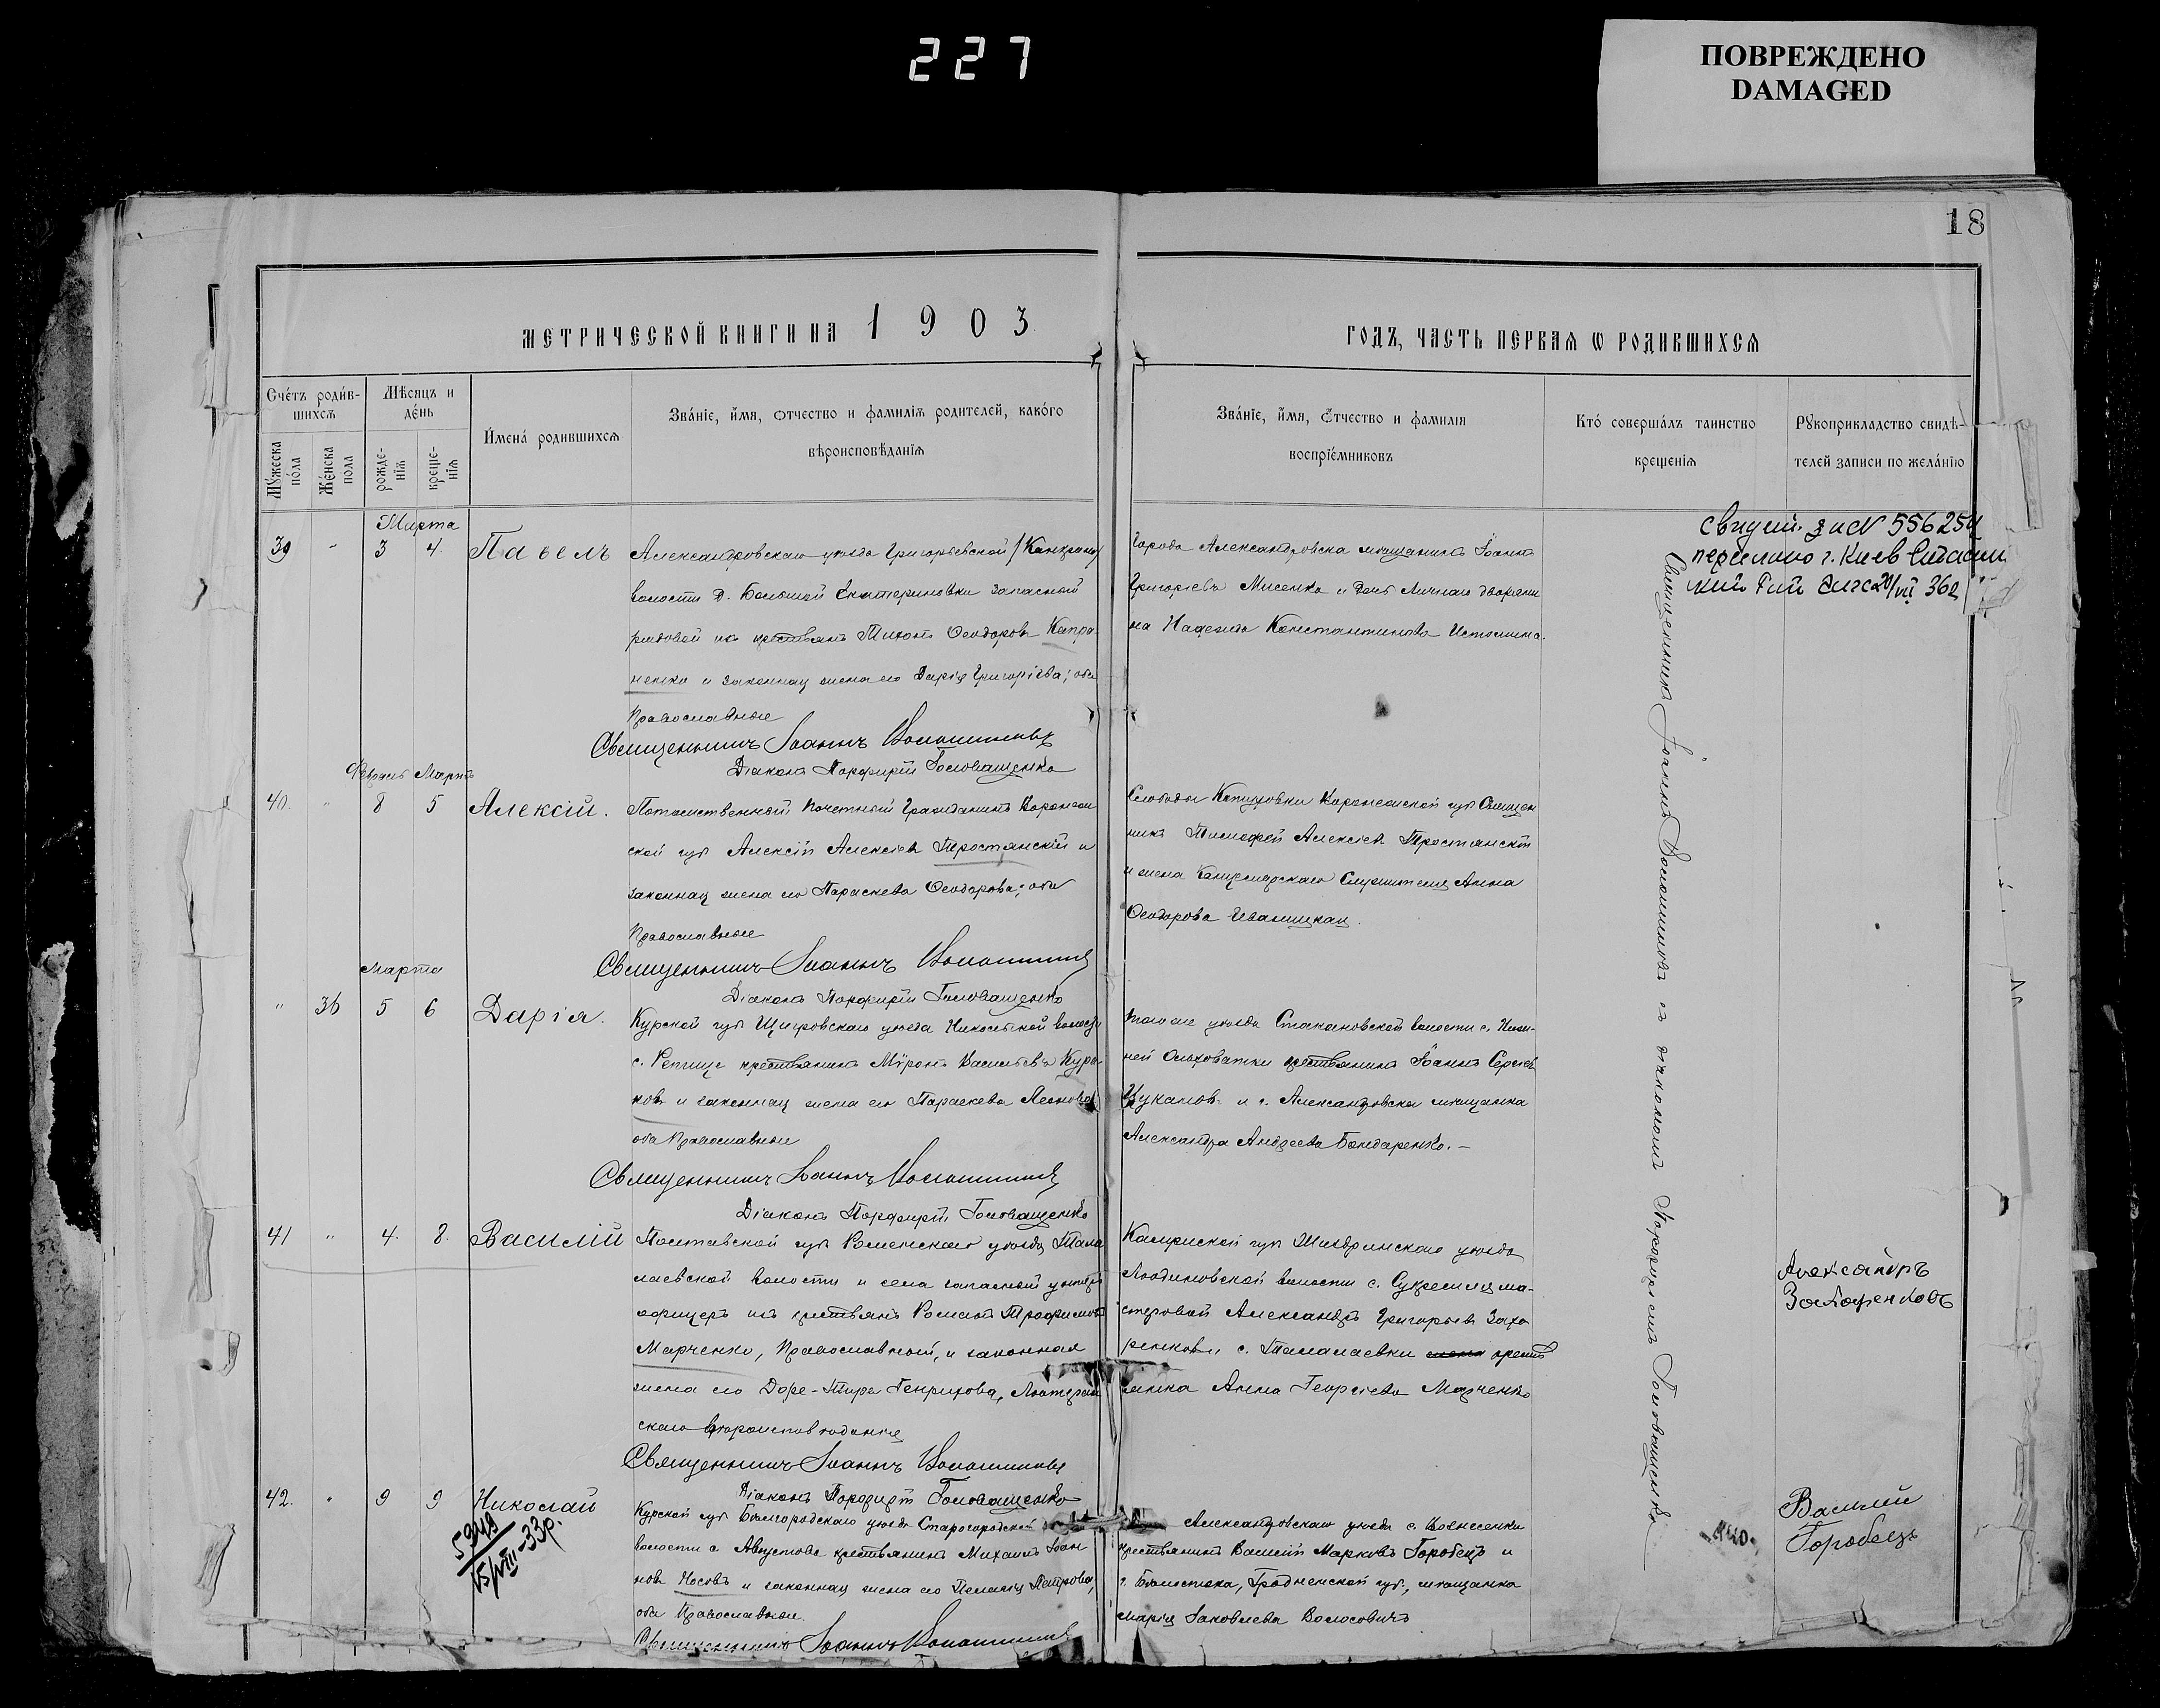 227
ПОВРЕЖДЕНО
DAMAGED
18
МЕТРИЧЕСКОЙ КНИГИ НА 1903
ГОДЪ, ЧАСТЬ ПЕРВАЯ Ѡ РОДИВШИХСЯ
Счетъ родив-
шихся
Мѣсяцъ и
день
Мужеска
пола
Женска
пола
рожде-
нія
креще-
нія
Имена родившихся
Званіе, имя, отчество и фамилія родителей, какого
вѣроисповѣданія
Званіе, имя, отчество и фамилія
воспріемниковъ
Кто совершалъ таинство
крещенія
Рукоприкладство свидѣ-
телей записи по желанію
Марта
39 " 3 4. Павелъ
Александровскаго уѣзда Григорьевской
волости д. Большой Екатериновки запасный
рядовой изъ крестьянъ Тихонъ Ѳеодоровъ Капра-
ненко и законная жена его Дарія Григоріева; оба
Православные
Священникъ Іоаннъ Волошиновъ
Діаконъ Порфирій Головащенко
Города Александровска мѣщанинъ Іоаннъ
Григорьевъ Мисенко и дочь Личнаго дворяни
на Надежда Константинова Истомина.
556254
г. Киев
Февраль Марта
40. " 8 5 Алексій.
Потомственный Почетный Гражданинъ Воронеж
ской губ Алексій Алексіевъ Тростянскій и
законная жена его Параскева Ѳеодорова; оба
Православные
Священникъ Іоаннъ Волошиновъ
Діаконъ Порфирій Головащенко
Слободы Воронежской губ Священ
никъ Тимофей Алексіевъ Тростянскій
и жена Канцелярскаго Служителя Анна
Ѳеодорова Иваницкая.
Марта
" 36 5 6 Дарія.
Курской губ Щигровскаго уѣзда Никольской волости
с. Репище крестьянинъ Мѵронъ Васильевъ Кура-
ковъ и законная жена его Параскева Леонова
оба Православные
Священникъ Іоаннъ Волошиновъ
Діаконъ Порфирій Головащенко
того же уѣзда Стакановской волости с. Ниж-
ней Ольховатки крестьянинъ Іоаннъ Сергіевъ
Цукановъ и г. Александровска мѣщанка
Александра Андреева Бондаренко.–
41 " 4. 8. Василій
Полтавской губ Роменскаго уѣзда Тала
лаевской волости и села запасный унтеръ
офицеръ изъ крестьянъ Романъ Трофимовъ
Марченко, Православный, и законная
жена его Генрихова, Лютеран
скаго вѣроисповѣданія
Священникъ Іоаннъ Волошиновъ
Діаконъ Порфирій Головащенко
Калужской губ Жиздринскаго уѣзда
Людиновской волости с. Сукремля ма-
стеровой Александръ Григорьевъ Захо
ренковъ и с. Талалаевки крест
янка Анна Георгіева Марченко
Александръ
42. " 9 9 Николай
5949
15/VIII-33р.
Курской губ Бѣлгородскаго уѣзда Старогородской
волости с Августова крестьянинъ Михаилъ Іоан
новъ Носовъ и законная жена его Пелагія Петрова,
оба Православные.
Священникъ Іоаннъ Волошиновъ
Александровскаго уѣзда с. Вознесенки
крестьянинъ Василій Марковъ Горобецъ и
г. Бѣлостока, Гродненской губ., мѣщанка
Марія Іаковлева Волосовичъ
Василій
Горобецъ
Священникъ Іоаннъ Волошиновъ съ діакономъ Порфиріемъ Головащенко